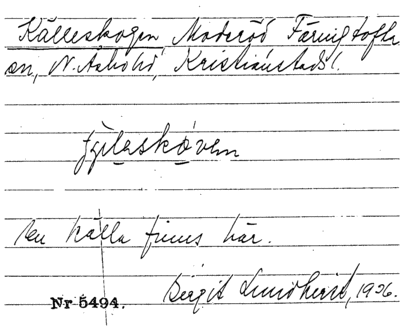 Källeskogen, Moderöd Färingtofta
sn, N. Åsbo hd, Kristianstads l.
En källa finns här.
Birgit Lundkvist, 1926.
Nr 5494.